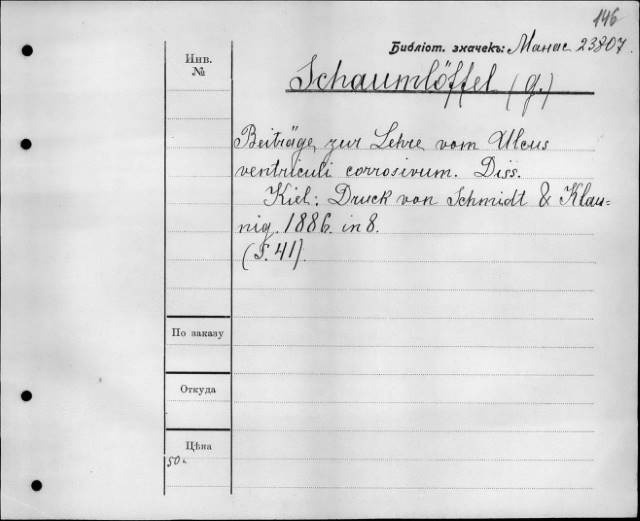 146
Библіот. значекъ: Манас 23807.
Инв.
№
Schaumlöffel (G.)
Beiträge zur Lehre vom Ulcus
ventriculi corrosivum. Diss.
Kiel: Druck von Schmidt & Klau-
nig. 1886. in 8.
(S. 41).
По заказу
Откуда
Цѣна
50